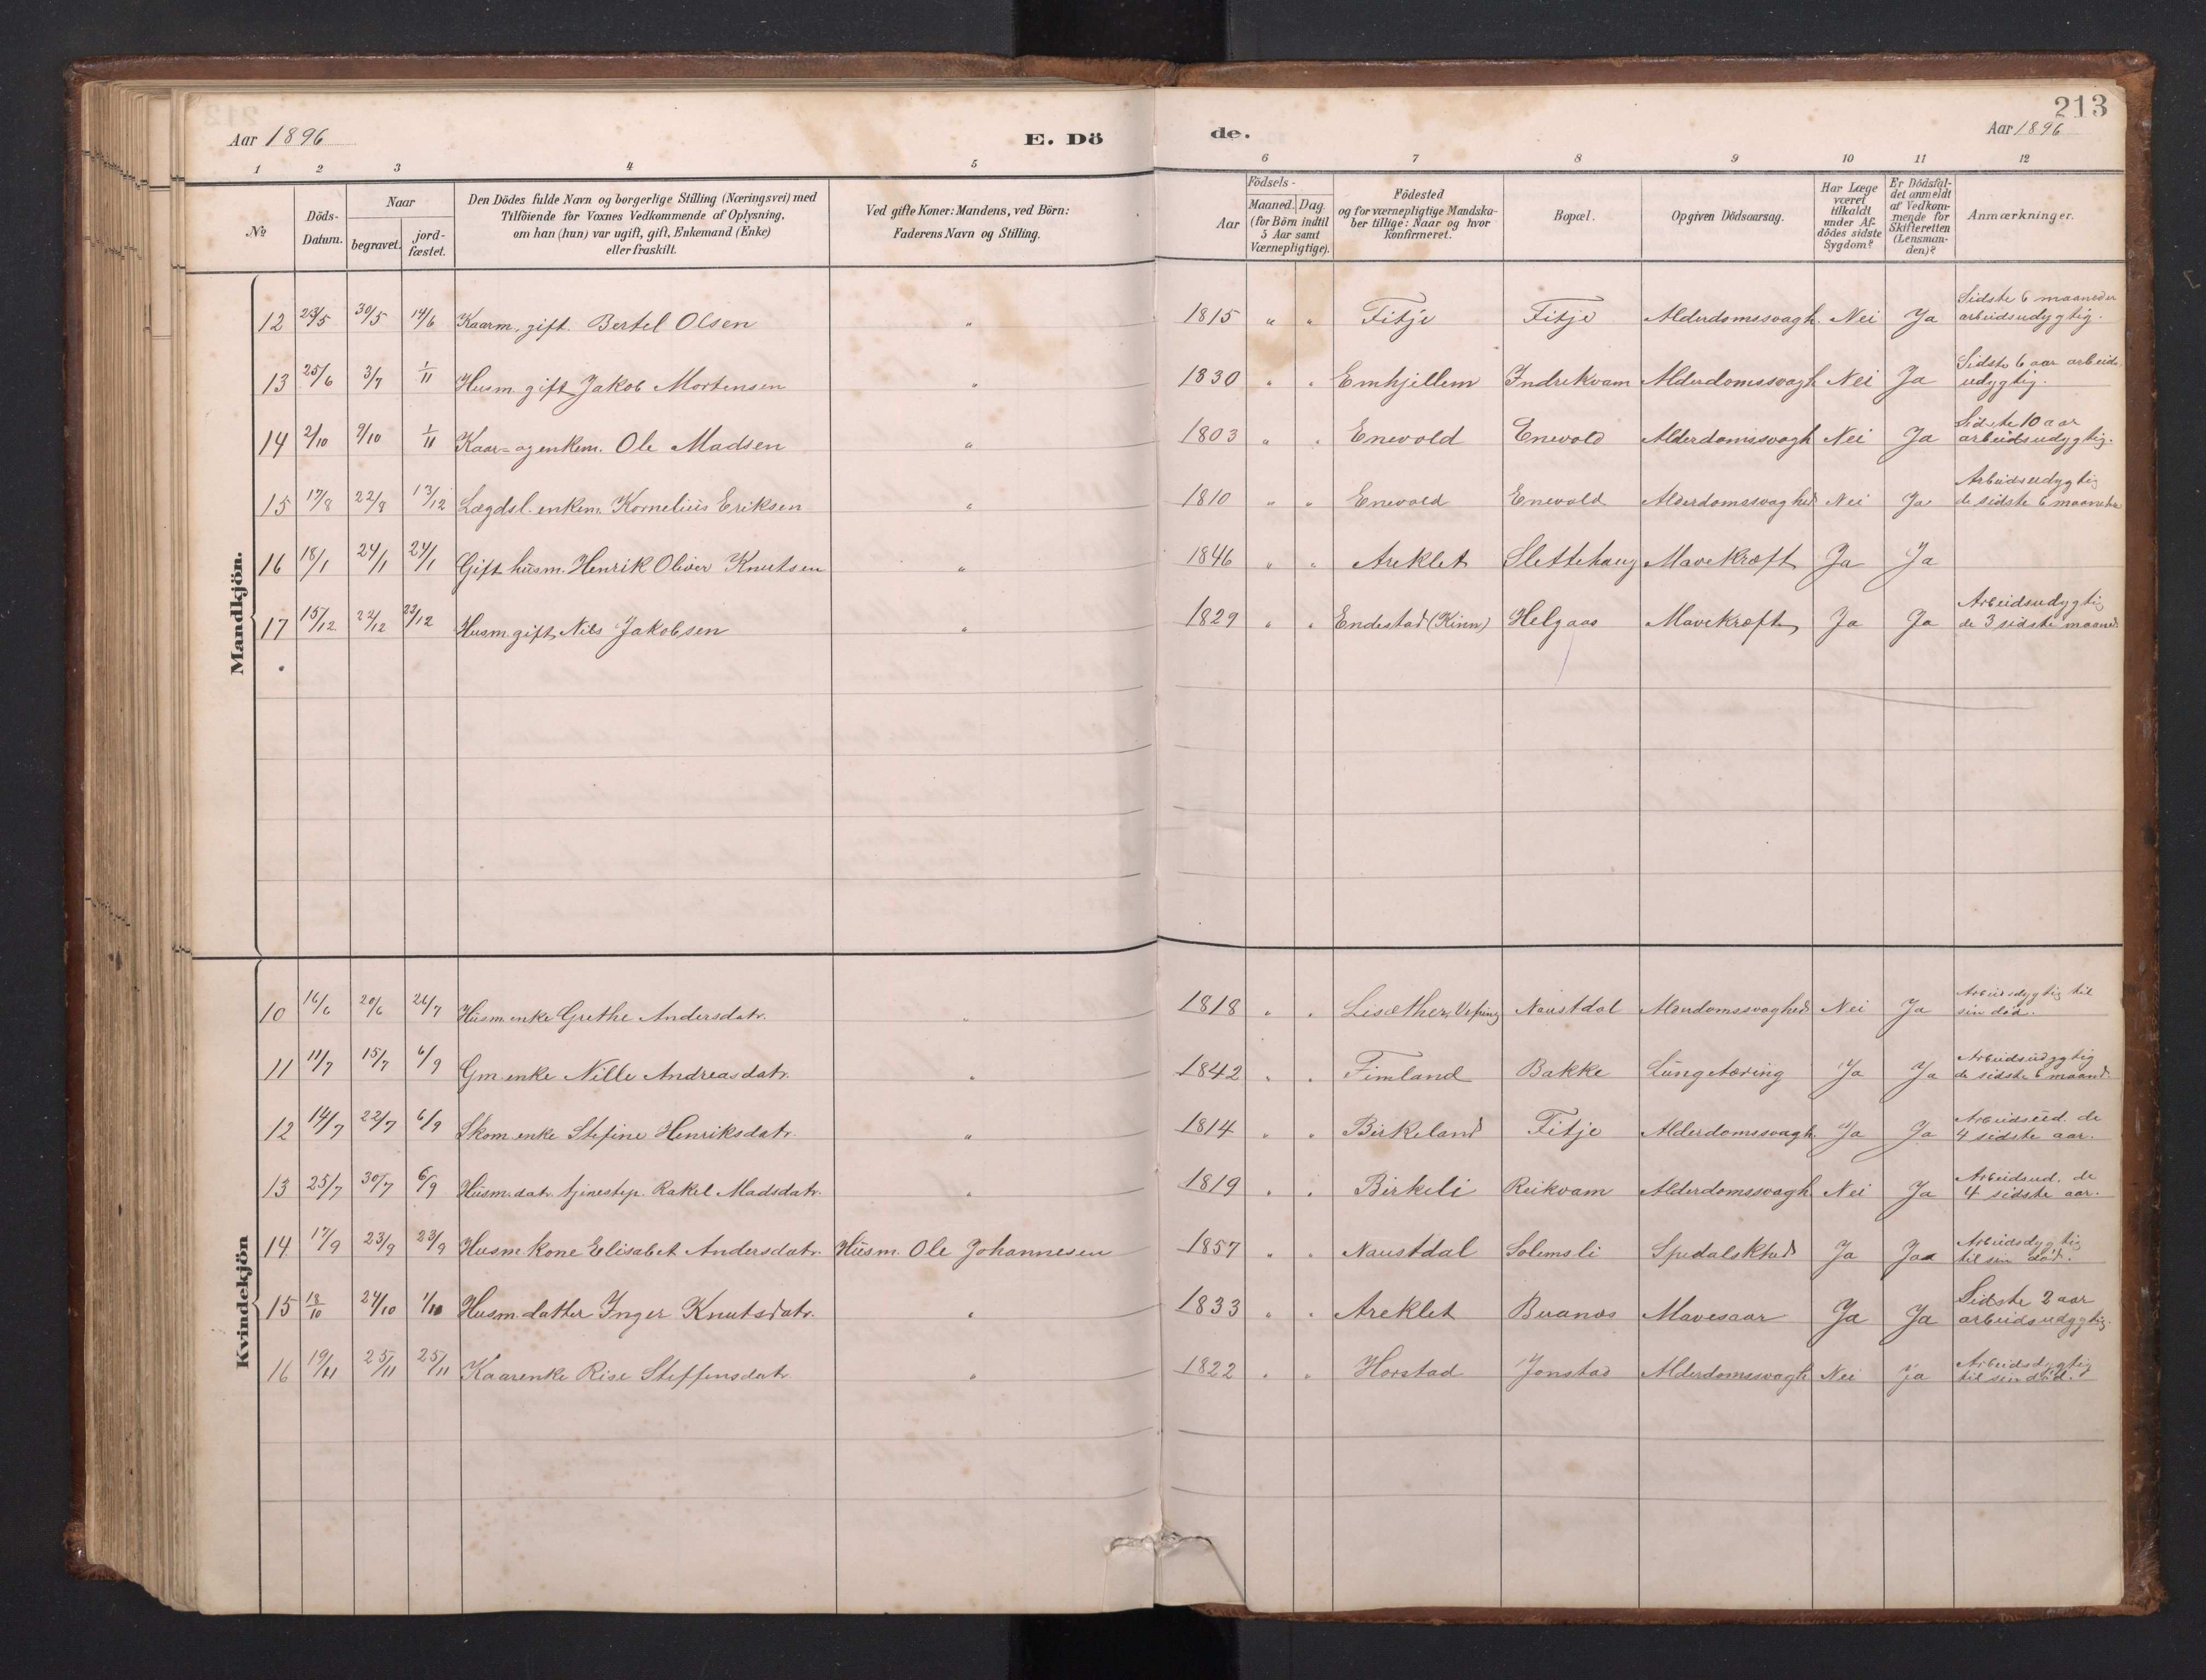 213
Aar 1896 E. Dö de. Aar 1896
1 2 3 4 5 6 7 8 9 10 11 12
№
Döds-
Datum.
Naar
begravet.
jord-
fæstet.
Den Dödes fulde Navn og borgerlige Stilling (Næringsvei) med
Tilföiende for Voxnes Vedkommende af Oplysning,
om han (hun) var ugift, gift, Enkemand (Enke)
eller fraskilt.
Ved gifte Koner: Mandens, ved Börn:
Faderens Navn og Stilling.
Födsels-
Aar
Maaned. Dag.
(for Börn indtil
5 Aar samt
Værnepligtige).
Födested
og for værnepligtige Mandska-
ber tillige: Naar og hvor
konfirmeret.
Bopæl.
Opgiven Dödsaarsag.
Har Læge
været
tilkaldt
under Af-
dödes sidste
Sygdom?
Er Dödsfal-
det anmeldt
af Vedkom-
mende for
Skifteretten
(Lensman-
den)?
Anmærkninger.
Mandkjön.
12 23/5 30/5 14/6 Kaarm. gift. Bertel Olsen " 1815 " " Fitje Fitje Alderdomssvagh. Nei Ja Sidste 6 maaneder
arbeidsudygtig.
13 25/6 3/7 1/11 Husm. gift Jakob Mortensen " 1830 " " Emhjellem Indrekvam Alderdomssvagh Nei Ja Sidste 6 aar arbeids
udygtig.
14 2/10 9/10 1/11 Kaar- og enkem. Ole Madsen " 1803 " " Enevold Enevold Alderdomssvagh Nei Ja Sidste 10 aar
arbeidsudygtig.
15 17/8 22/8 13/12 Lægdsl. enkem. Kornelius Eriksen " 1810 " " Enevold Enevold Alderdomssvaghed Nei Ja Arbeidsudygtig
de sidste 6 maaneder
16 18/1 24/1 24/1 Gift husm. Henrik Oliver Knutsen " 1846 " " Areklet Slettehaug Mavekræft Ja Ja
17 15/12 22/12 22/12 Husm. gift Nils Jakobsen " 1829 " " Endestad (Kinn) Helgaas Mavekræft Ja Ja Arbeidsudygtig
de 3 sidste maaned
Kvindekjön
10 16/6 20/6 26/7 Husm. enke Grethe Andersdatr. " 1818 " " Lisæther, Naustdal Alderdomssvaghed Nei Ja Arbeidsdygtig til
sin död.
11 11/7 15/7 6/9 Gm. enke Nille Andreasdatr. " 1842 " " Fimland Bakke Lungetæring Ja Ja Arbeidsudygtig
de sidste 6 maand.
12 14/7 22/7 6/9 Skom. enke Stefine Henriksdatr. " 1814 " " Birkeland Fitje Alderdomssvagh Ja Ja Arbeidsud. de
4 sidste aar.
13 25/7 30/7 6/9 Husm. datr. tjenestep. Rakel Madsdatr. " 1819 " " Birkeli Reikvam Alderdomssvagh Nei Ja Arbeidsud. de
4 sidste aar.
14 17/9 23/9 23/9 Husm. kone Elisabet Andersdatr. Husm. Ole Johannesen 1857 " " Naustdal Solemsli Spedalskhed Ja Jaa Arbeidsdygtig
til sin död.
15 18/10 24/10 1/10 Husm. datter Inger Knutsdatr. " 1833 " " Areklet Buanes Mavesaar Ja Ja Sidste 2 aar
arbeidsudygtig.
16 19/11 25/11 25/11 Kaarenke Rise Steffensdatr. " 1822 " " Horstad Jonstad Alderdomssvagh Nei Ja Arbeidsdygtig
til sin död.